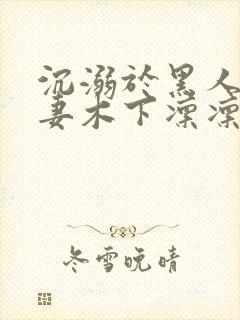 沉溺於黑人
妻木下凜凜
冬雪晚晴